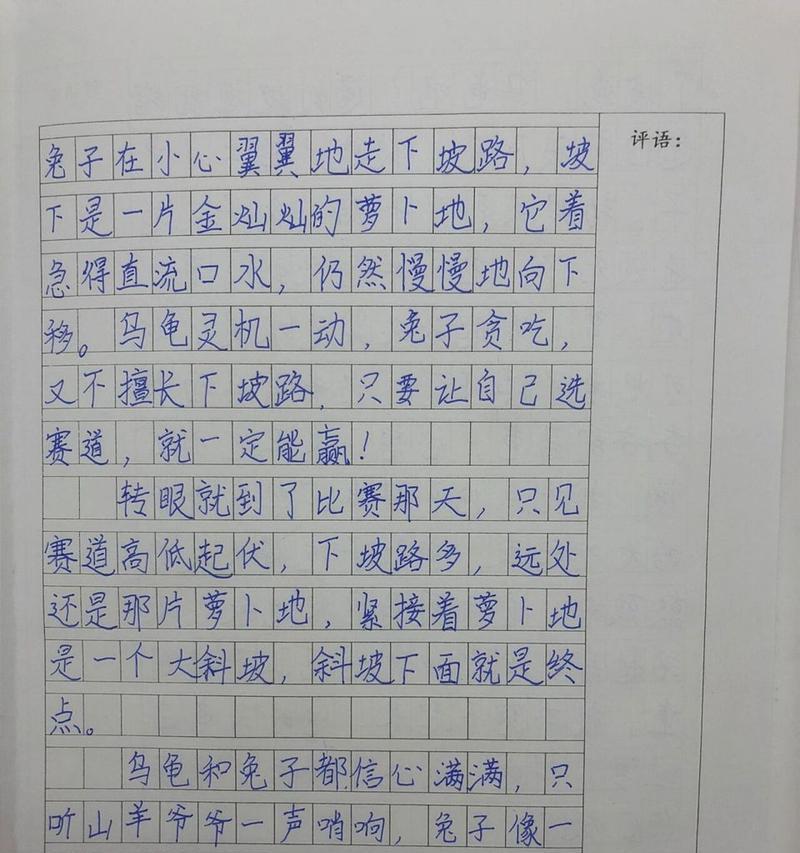 评语：
兔子在小心翼翼地走下坡路，坡
下是一片金灿灿的萝卜地，它着
急得直流口水，仍然慢慢地向下
移。乌龟灵机一动，兔子贪吃，
又不擅长下坡路，只要让自己选
赛道，就一定能赢！
转眼就到了比赛那天，只见
赛道高低起伏，下坡路多，远处
还是那片萝卜地，紧接着萝卜地
是一个大斜坡，斜坡下面就是终
点。
乌龟和兔子都信心满满，只
听山羊爷爷一声哨响，兔子像一